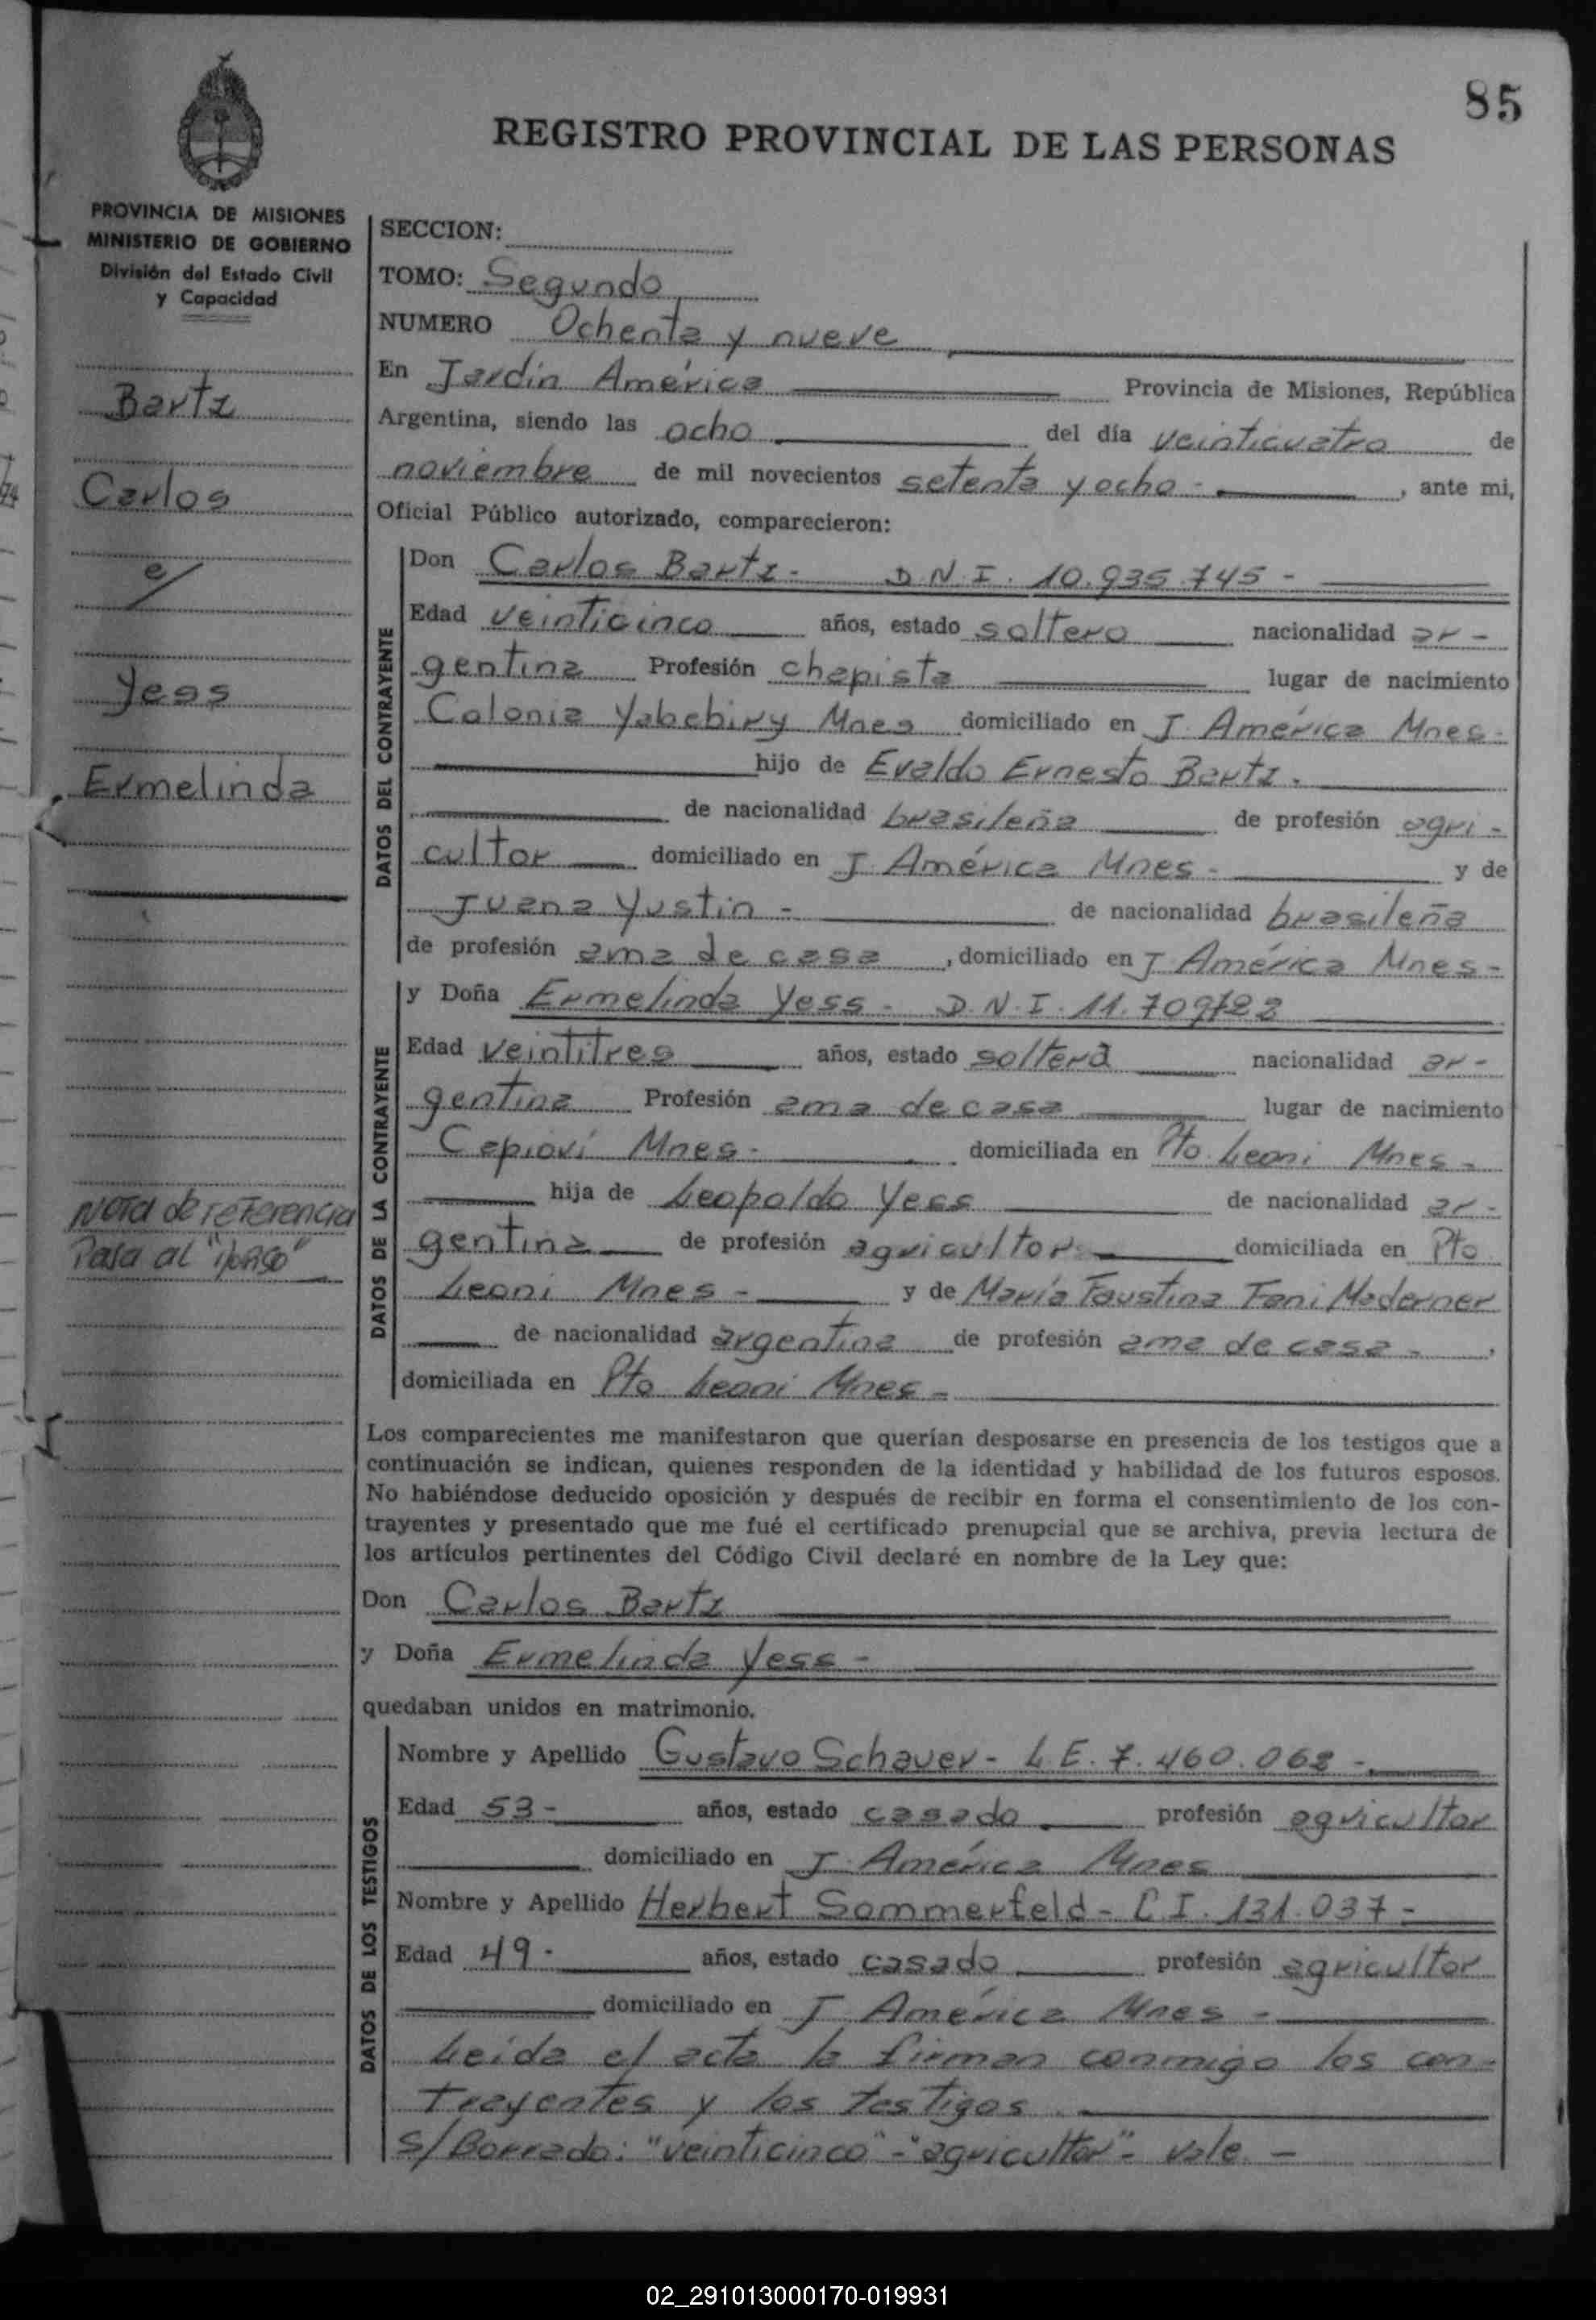 85
REGISTRO PROVINCIAL DE LAS PERSONAS
PROVINCIA DE MISIONES
MINISTERIO DE GOBIERNO
División del Estado Civil
y Capacidad
Bartz
Carlos
c/
Yess
Ermelinda
Nota de referencia
Pasa al "dorso"
SECCION:
TOMO: Segundo
NUMERO Ochenta y nueve
En Jardín América Provincia de Misiones, República
Argentina, siendo las ocho del día veinticuatro de
noviembre de mil novecientos setenta y ocho - , ante mi,
Oficial Público autorizado, comparecieron:
DATOS DEL CONTRAYENTE
Don Carlos Bartz - D.N.I. 10.935.745 -
Edad veinticinco años, estado soltero nacionalidad ar-
gentina Profesión chapista lugar de nacimiento
Colonia Yabebiry Mnes domiciliado en J. América Mnes-
hijo de Evaldo Ernesto Bartz.
de nacionalidad brasileña de profesión agri-
cultor domiciliado en J. América Mnes - y de
Juana Yustin - de nacionalidad brasileña
de profesión ama de casa , domiciliado en J América Mnes-
DATOS DE LA CONTRAYENTE
y Doña Ermelinda Yess - D.N.I. 11.709
Edad veintitres años, estado soltera nacionalidad ar-
gentina Profesión ama de casa lugar de nacimiento
Capioví Mnes- domiciliada en Pto. Leoni Mnes-
hija de Leopoldo Yess de nacionalidad ar-
gentina de profesión agricultor domiciliada en Pto
Leoni Mnes - y de María Faustina Fani Maderner
de nacionalidad argentina de profesión ama de casa - ,
domiciliada en Pto Leoni Mnes-
Los comparecientes me manifestaron que querían desposarse en presencia de los testigos que a
continuación se indican, quienes responden de la identidad y habilidad de los futuros esposos.
No habiéndose deducido oposición y después de recibir en forma el consentimiento de los con-
trayentes y presentado que me fué el certificado prenupcial que se archiva, previa lectura de
los artículos pertinentes del Código Civil declaré en nombre de la Ley que:
Don Carlos Bartz
y Doña Ermelinda Yess -
quedaban unidos en matrimonio.
DATOS DE LOS TESTIGOS
Nombre y Apellido Gustavo Schauer - L.E. 7.460.062 -
Edad 53 - años, estado casado profesión agricultor
domiciliado en J. América Mnes
Nombre y Apellido Herbert Sommerfeld - C.I. 131.037 -
Edad 49 - años, estado casado profesión agricultor
domiciliado en J América Mnes -
Leída el acta la firman conmigo los con-
trayentes y los testigos
s/Borrado: "veinticinco" - "agricultor" - vale -
02_291013000170-019931